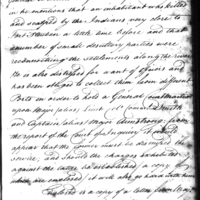 he mentions that an inhabitant was killed
and scalped by the Indians very close to
Fort Steuben a little time before and that
a number of small desultory parties were
reconnoitering the settlements along the river
He is also distressed for want of Officers and
has been obliged to collect them from different
Posts in order to hold a General Court martial
upon Major
and Captain Armstrong, from
the report of the Court of Inquiry it would
appear that the former must be dismissed the
service, and should the charges exhibited
against the latter be established, a copy of
which are enclosed, it will also go hard with him
Enclosed is a copy of a letter from Major